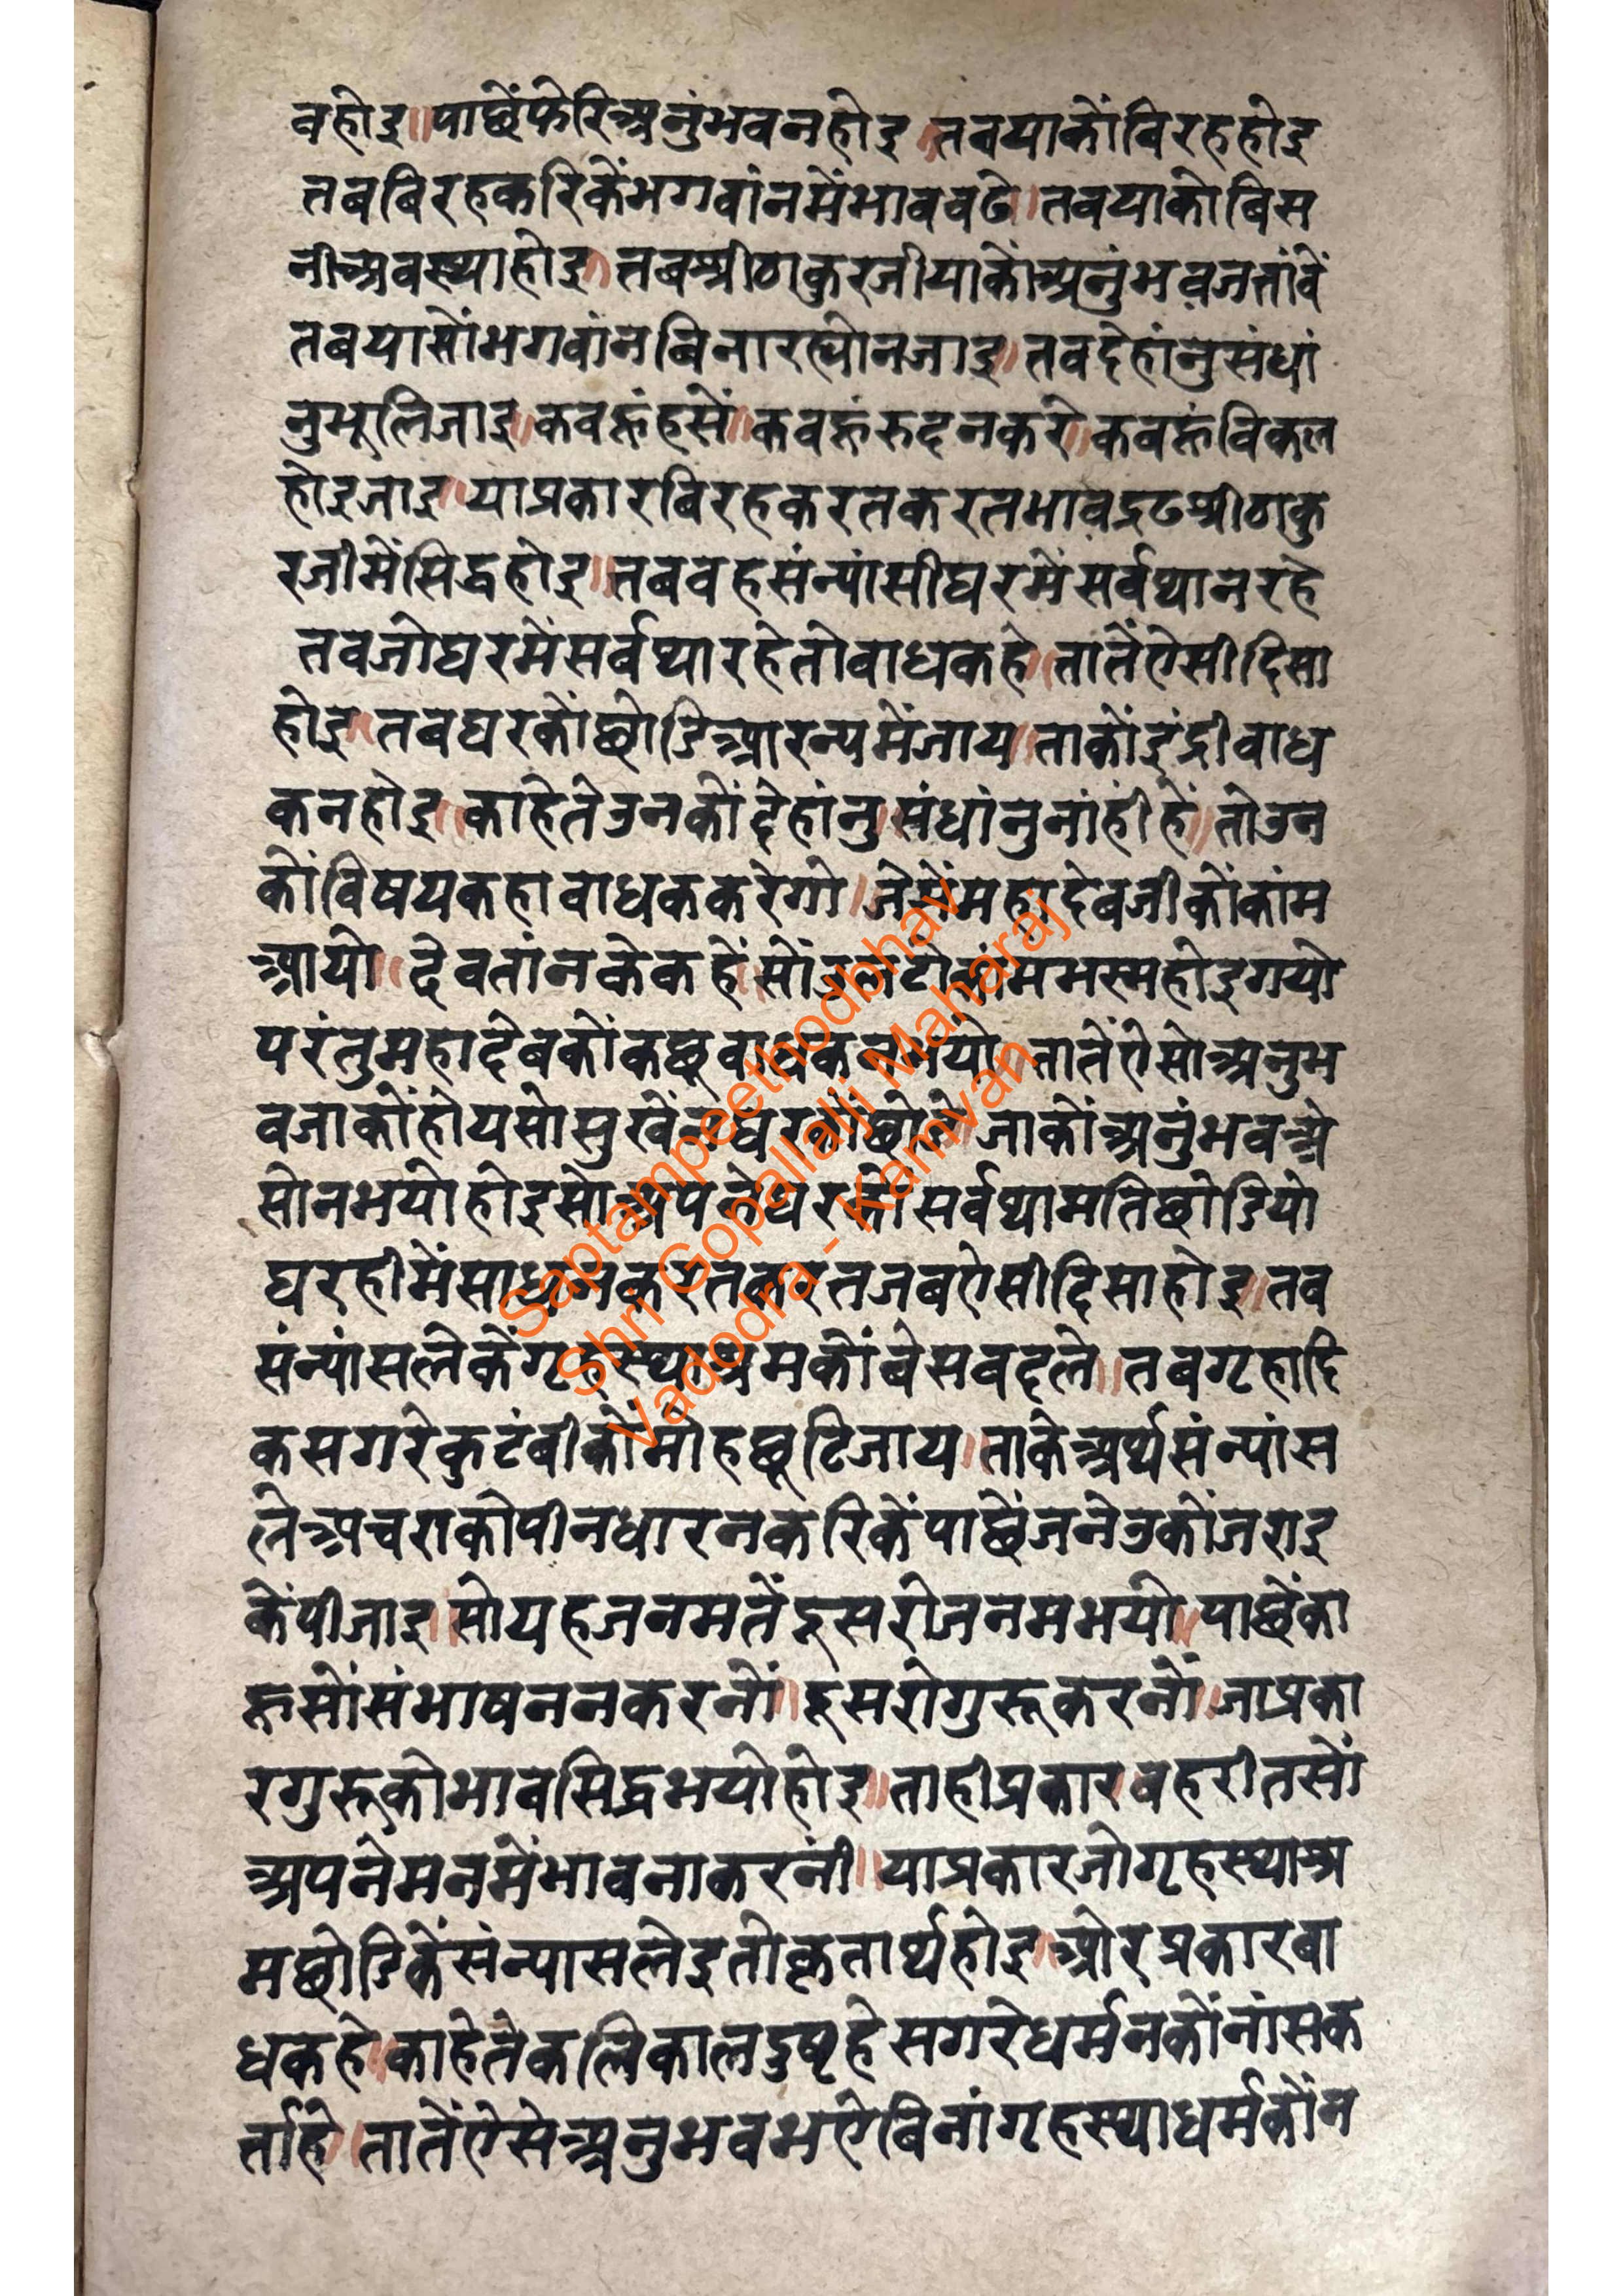 बहोइ॥पाछेंफेरिअनुंभवनहोइ॥तबयाकोंबिरहहोइ
तबबिरहकरिकेंभगवांनमेंभावबढे॥तबयाकोबिस
नीअवस्थाहोइ॥तबश्रीठाकुरजीयाकोंअनुंभवजतांवें
तबयासोंभगवांनबिनारह्योनजाइ॥तबदेहांनुसंधां
नुभूलिजाइ॥कबहूंहसें॥कबहूंरुदनकरे॥कबहूंविकल
होइजाइ॥याप्रकारबिरहकरतकरतभावद्रढश्रीठाकु
रजीमेंसिद्धहोइ॥तबवहसंन्यांसीघरमेंसर्वथानरहे
तबजोघरमेंसर्वथारहेतोबाधकहे॥तातेंऐसीदिसा
होइ॥तबघरकोंछोडिआरन्यमेंजाय॥ताकोंइंद्रीबाध
कनहोइ॥काहेतेउनकोंदेहांनुसंधांनुनांहींहें॥तोउन
कोंविषयकहाबाधककरेगो॥जेसेंमहादेवजीकोंकांम
आयो॥देवतांनकेकहें॥सोंउलटोकांमभस्महोइगयो
परंतुमहादेवकोंकछूबाधकनभयो॥तातेंऐसोअनुभ
वजाकोंहोयसोसुखेंनघरकोंछोडो॥जाकोंअनुंभवअे
सोनभयोहोइसोअपनेघरकोसर्वथामतिछोडियो
घरहीमेंसाधनकरतकरतजबऐसीदिसाहोइ॥तब
संन्यांसलेकेंगृहस्थाश्रमकोंबेसबदले॥तबगृहादि
कसगरेकुटंबीकोंमोहछूटिजाय॥ताकेअर्थसंन्यांस
लेअचराकोपीनधारनकरिकेंपाछेंजनेउकोंजराइ
केंपीजाइ॥सोयहजनमतेंदूसरोजनमभयो॥पाछेंका
हूसोंसंभाषननकरनों॥दूसरोगुरूकरनों॥जाप्रका
रगुरूकोभावसिद्धभयोहोइ॥ताहीप्रकारबहरीतसों
अपनेमनमेंभावनाकरनीं॥याप्रकारजोगृहस्थाश्र
मछोडिकेंसंन्यासलेइतोकृतार्थहोइ॥ओरप्रकारबा
धकहे॥काहेतेकलिकालदुष्टहेसगरेधर्मनकोंनांसक
र्ताहे॥तातेंऐसेअनुभवभऐबिनांगृहस्थाधर्मकोंन
Saptampeethodbhav
Shri Gopallalji Maharaj
Vadodra - Kamvan